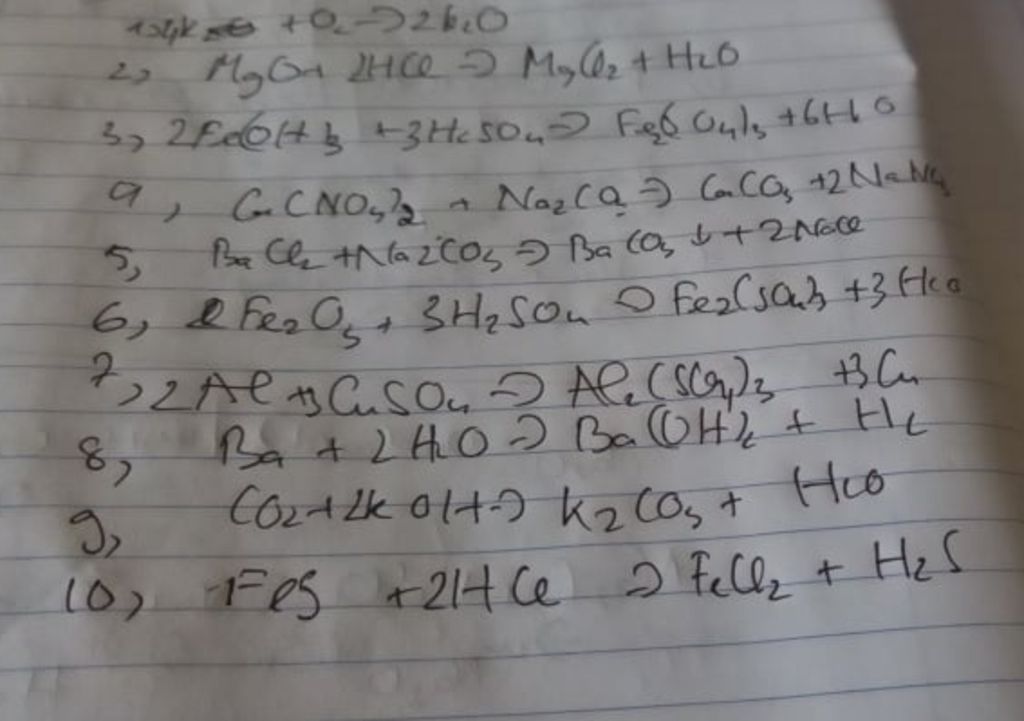 + O2 → 2k2O
2, MgO + 2HCl → MgCl2 + H2O
3, 2Fe(OH)3 + 3H2SO4 → Fe2(SO4)3 + 6H2O
4, Ca(NO3)2 + Na2CO3 → CaCO3 + 2NaNO3
5, BaCl2 + Na2CO3 → BaCO3 ↓ + 2NaCl
6, Fe2O3 + 3H2SO4 → Fe2(SO4)3 + 3H2O
7, 2Al + 3CuSO4 → Al2(SO4)3 + 3Cu
8, Ba + 2H2O → Ba(OH)2 + H2
9, CO2 + 2kOH → k2CO3 + H2O
10, FeS + 2HCl → FeCl2 + H2S